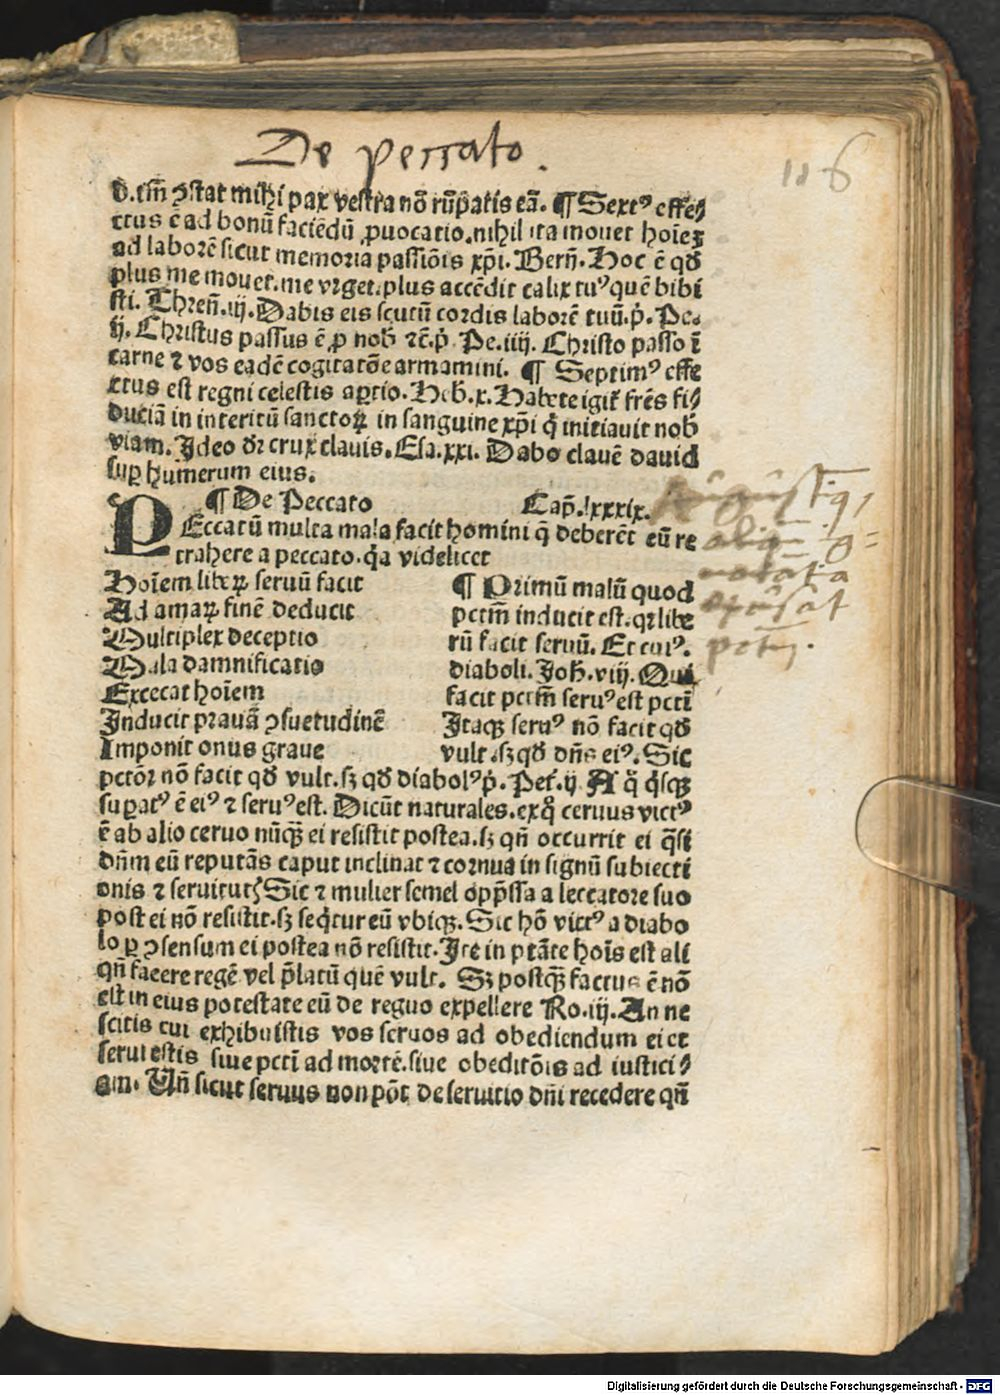 De peccato.
116
d.tm̄ ꝯstat mihi pax vestra nō rūpatis eā. ¶ Sextꝰ effe⸗
ctus ē ad bonū faciēdū ꝓuocatio. nihil ita mouet hoīeꝫ
ad laborē sicut memoria passiōis xp̄i. Bern̄. Hoc ē qd̄
plus me mouet. me vrget. plus accēdit calix tuꝰ quē bibi
sti. Thren̄. iij. Dabis eis scutū cordis laborē tuū. ṗ. Pe.
ij. Christus passus ē ꝓ nob̄ ⁊c̄. ṗ Pe. iiij. Christo passo ī
carne ⁊ vos eadē cogitatōe armamini. ¶ Septimꝰ effe
ctus est regni celestis aꝑtio. Heb̄. x. Habete igit̄ frēs fi⸗
duciā in interitū sanctoꝝ in sanguine xp̄i q̄ initiauit nob̄
viam. Ideo dr̄ crux clauis. Esa. xxi. Dabo clauē dauid
suꝑ humerum eius.
¶ De Peccato Cap̄. lxxxix.
PEccatū multa mala facit homini q̄ deberēt eū re
trahere a peccato. q̄a videlicet
Hoīem libeꝝ seruū facit
Ad amaꝝ finē deducit
Multiplex deceptio
Mala damnificatio
Excecat hoīem
Inducit prauā ꝯsuetudinē
Imponit onus graue
¶ Primū malū quod
pctm̄ inducit est. qꝛ libe
rū facit seruū. Et cuiꝰ.
diaboli. Joh̄. viij. Qui
facit pctm̄ seruꝰ est pcti
Itaqꝫ seruꝰ nō facit qd̄
vult. sꝫ qd̄ dn̄s eiꝰ. Sic
pctōr nō facit qd̄ vult. sꝫ qd̄ diabolꝰ ṗ. Pet̄. ij A q̄ q̇sqꝫ
suꝑatꝰ ē eiꝰ ⁊ seruꝰ est. Dicūt naturales. ex qͦ ceruus victꝰ
ē ab alio ceruo nūqꝫ ei resistit postea. sꝫ qn̄ occurrit ei q̄si
dn̄m eū reputās caput inclinat ⁊ cornua in signū subiecti
onis ⁊ seruitutꝭ Sic ⁊ mulier semel opp̄ssa a leccatore suo
post ei nō resistit. sꝫ seq̇tur eū vbiqꝫ. Sic hō victꝰ a diabo
lo ꝑ ꝯsensum ei postea nō resistit. Itē in ptāte hoīs est ali
qn̄ facere regē vel p̄latū quē vult. Sꝫ postqꝫ factus ē nō
est in eius potestate eū de regno expellere Ro. iij. An ne
scitis cui exhibuistis vos seruos ad obediendum ei et
serui estis siue pcti ad mortē. siue obeditōis ad iustici⸗
am. Un̄ sicut seruus non pōt de seruitio dn̄i recedere qn̄
Digitalisierung gefördert durch die Deutsche Forschungsgemeinschaft - DFG